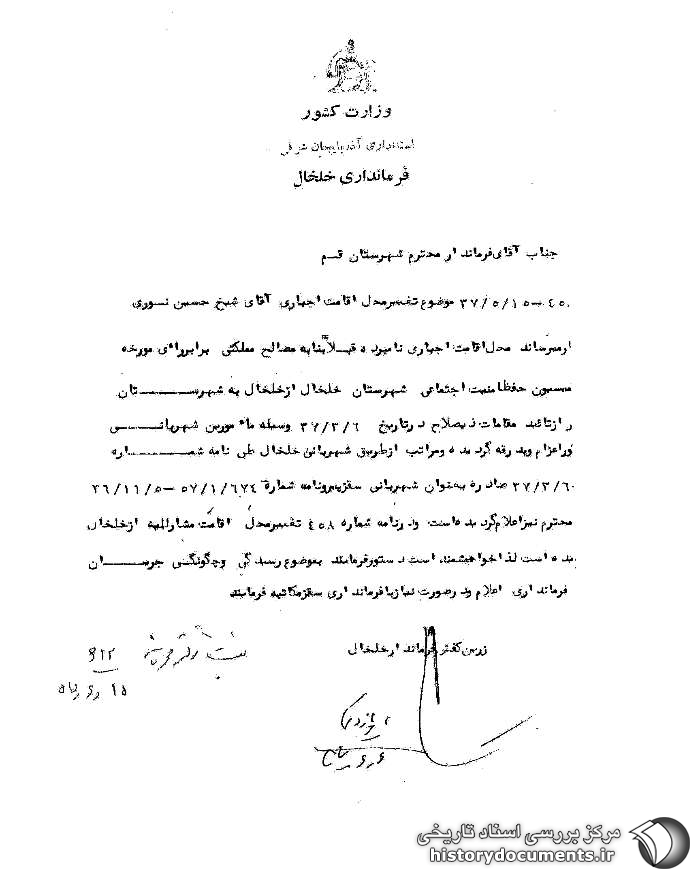 وزارت کشور
استانداری آذربایجان شرقی
فرمانداری خلخال
جناب آقای فرماندار محترم شهرستان قم
۴۵۰ – ۳۷/۵/۱۵ موضوع تغییر محل اقامت اجباری آقای شیخ حسین نوری
محل اقامت اجباری نامبرده قبلاً بنابه مصالح مملکتی برابر رای مورخه
کمیسیون حفظ امنیت اجتماعی شهرستان خلخال از خلخال به شهرستان
از تائید مقامات ذیصلاح در تاریخ ۳۷/۳/۶ وسیله مامورین شهربانی
اعزام و بدرقه گردیده و مراتب از طریق شهربانی خلخال طی نامه شماره
۳۷/۳/۶ صادره بعنوان شهربانی سقز برونامه شمارة ۵۷/۱/۶۷۴ – ۳۶/۱۱/۵
محترم نیز اعلام گردیده است و در نامه شماره ۴۵۸ تغییر محل اقامت مشارالیه از خلخال
است لذا خواهشمند است دستور فرمایند بموضوع رسیدگی و چگونگی جریان
فرمانداری اعلام و در صورت نیاز با فرمانداری سقز مکاتبه فرمایند
فرماندار خلخال
۹۲۲
مرکز بررسی اسناد تاریخی
historydocuments.ir